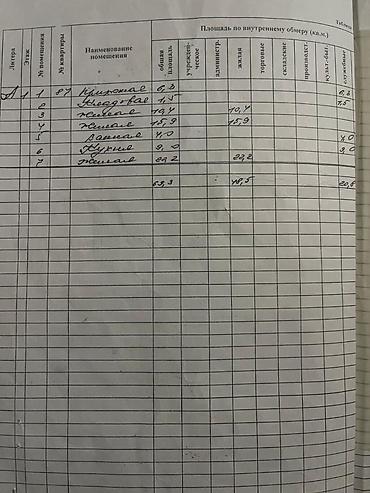 Таблица
Площадь по внутреннему обмеру (кв.м.)
Литера Этаж № помещения № квартиры Наименование помещения общая площадь учрежденческое администр. жилая торговые складские производст. культ-быт. служебные
А 1 1 87 Прихожая 6,3 6,3
2 Кладовая 1,5 1,5
3 Жилая 10,4 10,4
4 Жилая 15,9 15,9
5 Ванная 4,0 4,0
6 Кухня 9,0 9,0
7 Жилая 22,2 22,2
69,3 48,5 20,8